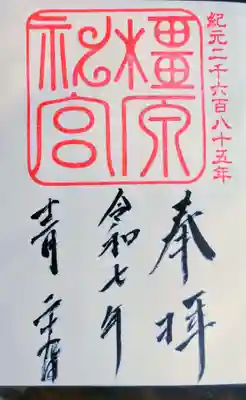 紀元二千六百八十五年
橿原
神宮
奉拝
令和七年